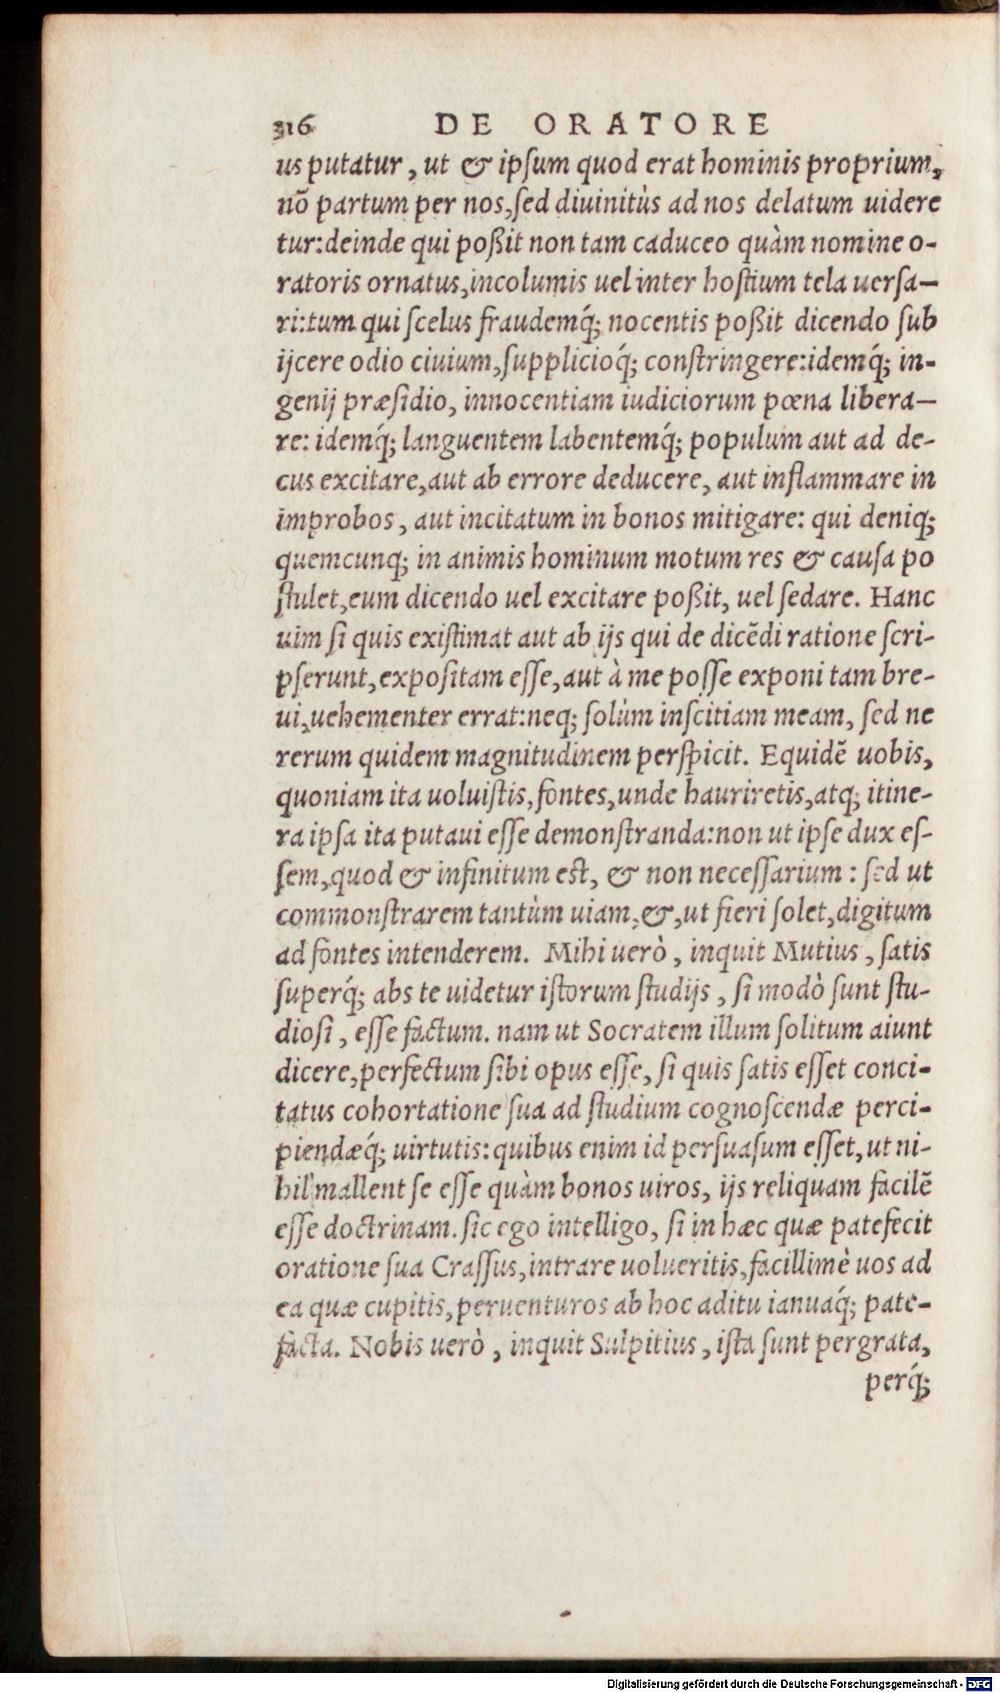 316 DE ORATORE
us putatur, ut & ipſum quod erat hominis proprium,
nō partum per nos, ſed diuinitùs ad nos delatum uidere
tur: deinde qui poßit non tam caduceo quàm nomine o-
ratoris ornatus, incolumis uel inter hoſtium tela uerſa-
ri: tum qui ſcelus fraudemq́; nocentis poßit dicendo ſub
ijcere odio ciuium, ſupplicioq́; conſtringere: idemq́; in-
genij præſidio, innocentiam iudiciorum pœna libera-
re: idemq́; languentem labentemq́; populum aut ad de-
cus excitare, aut ab errore deducere, aut inflammare in
improbos, aut incitatum in bonos mitigare: qui deniq;
quemcunq; in animis hominum motum res & cauſa po
ſtulet, eum dicendo uel excitare poßit, uel ſedare. Hanc
uim ſi quis exiſtimat aut ab ijs qui de dicēdi ratione ſcri-
pſerunt, expoſitam eſſe, aut à me poſſe exponi tam bre-
ui, uehementer errat: neq; ſolùm inſcitiam meam, ſed ne
rerum quidem magnitudinem perſpicit. Equidē uobis,
quoniam ita uoluiſtis, fontes, unde hauriretis, atq; itine-
ra ipſa ita putaui eſſe demonſtranda: non ut ipſe dux eſ-
ſem, quod & infinitum est, & non neceſſarium: ſed ut
commonſtrarem tantùm uiam, &, ut fieri ſolet, digitum
ad fontes intenderem. Mihi uerò, inquit Mutius, ſatis
ſuperq́; abs te uidetur iſtorum ſtudijs, ſi modò ſunt ſtu-
dioſi, eſſe factum. nam ut Socratem illum ſolitum aiunt
dicere, perfectum ſibi opus eſſe, ſi quis ſatis eſſet conci-
tatus cohortatione ſua ad ſtudium cognoſcendæ perci-
piendæq́; uirtutis: quibus enim id perſuaſum eſſet, ut ni-
hil mallent ſe eſſe quàm bonos uiros, ijs reliquam facilē
eſſe doctrinam. ſic ego intelligo, ſi in hæc quæ patefecit
oratione ſua Craſſus, intrare uolueritis, facillimè uos ad
ea quæ cupitis, peruenturos ab hoc aditu ianuaq́; pate-
facta. Nobis uerò, inquit Sulpitius, iſta ſunt pergrata,
perq́;
Digitalisierung gefördert durch die Deutsche Forschungsgemeinschaft - DFG